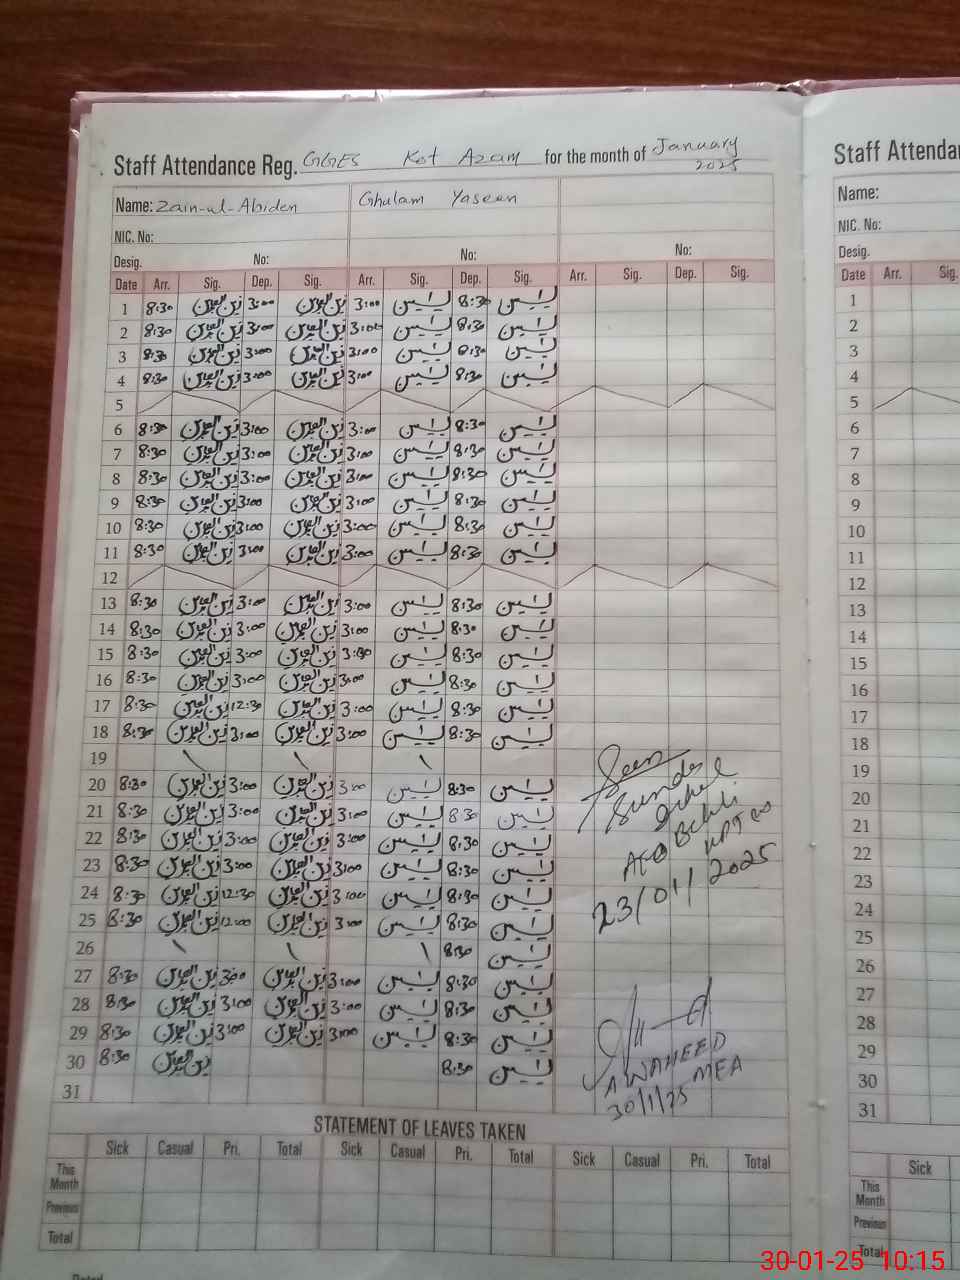 Staff Attendance Reg. GGES Kot Azam for the month of January 2025
Name: Zain-ul-Abiden Ghulam Yaseen
NIC. No:
Desig. No: No: No:
Date Arr. Sig. Dep. Sig. Arr. Sig. Dep. Sig. Arr. Sig. Dep. Sig.
1 8:30 زین العابدین 3:00 زین العابدین 3:00 یٰسین 8:30 یٰسین
2 8:30 زین العابدین 3:00 زین العابدین 3:00 یٰسین 8:30 یٰسین
3 8:30 زین العابدین 3:00 زین العابدین 3:00 یٰسین 8:30 یٰسین
4 8:30 زین العابدین 3:00 زین العابدین 3:00 یٰسین 8:30 یٰسین
5
6 8:30 زین العابدین 3:00 زین العابدین 3:00 یٰسین 8:30 یٰسین
7 8:30 زین العابدین 3:00 زین العابدین 3:00 یٰسین 8:30 یٰسین
8 8:30 زین العابدین 3:00 زین العابدین 3:00 یٰسین 8:30 یٰسین
9 8:30 زین العابدین 3:00 زین العابدین 3:00 یٰسین 8:30 یٰسین
10 8:30 زین العابدین 3:00 زین العابدین 3:00 یٰسین 8:30 یٰسین
11 8:30 زین العابدین 3:00 زین العابدین 3:00 یٰسین 8:30 یٰسین
12
13 8:30 زین العابدین 3:00 زین العابدین 3:00 یٰسین 8:30 یٰسین
14 8:30 زین العابدین 3:00 زین العابدین 3:00 یٰسین 8:30 یٰسین
15 8:30 زین العابدین 3:00 زین العابدین 3:00 یٰسین 8:30 یٰسین
16 8:30 زین العابدین 3:00 زین العابدین 3:00 یٰسین 8:30 یٰسین
17 8:30 زین العابدین 12:30 زین العابدین 3:00 یٰسین 8:30 یٰسین
18 8:30 زین العابدین 3:00 زین العابدین 3:00 یٰسین 8:30 یٰسین
19
20 8:30 زین العابدین 3:00 زین العابدین 3:00 یٰسین 8:30 یٰسین
21 8:30 زین العابدین 3:00 زین العابدین 3:00 یٰسین 8:30 یٰسین
22 8:30 زین العابدین 3:00 زین العابدین 3:00 یٰسین 8:30 یٰسین
23 8:30 زین العابدین 3:00 زین العابدین 3:00 یٰسین 8:30 یٰسین
24 8:30 زین العابدین 12:30 زین العابدین 3:00 یٰسین 8:30 یٰسین
25 8:30 زین العابدین 12:00 زین العابدین 3:00 یٰسین 8:30 یٰسین
26 8:30 یٰسین
27 8:30 زین العابدین 3:00 زین العابدین 3:00 یٰسین 8:30 یٰسین
28 8:30 زین العابدین 3:00 زین العابدین 3:00 یٰسین 8:30 یٰسین
29 8:30 زین العابدین 3:00 زین العابدین 3:00 یٰسین 8:30 یٰسین
30 8:30 زین العابدین 8:30 یٰسین
31
Seen
AEO
23/01/2025
A WAHEED
MEA
30/1/25
STATEMENT OF LEAVES TAKEN
Sick Casual Pri. Total Sick Casual Pri. Total Sick Casual Pri. Total
This Month
Previous
Total
Staff Attenda
Name:
NIC. No:
Desig.
Date Arr. Sig.
1
2
3
4
5
6
7
8
9
10
11
12
13
14
15
16
17
18
19
20
21
22
23
24
25
26
27
28
29
30
31
Sick
This Month
Previous
Total
30-01-25 10:15